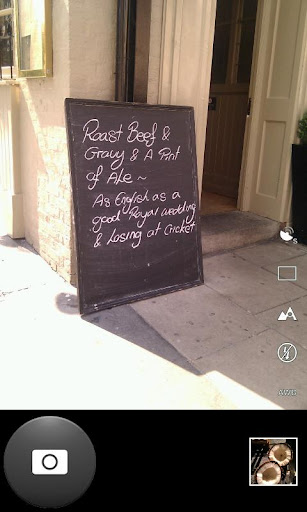 Roast Beef &
Gravy & A Pint
of Ale ~
As English as a
good Royal wedding
& Losing at Cricket
AWB